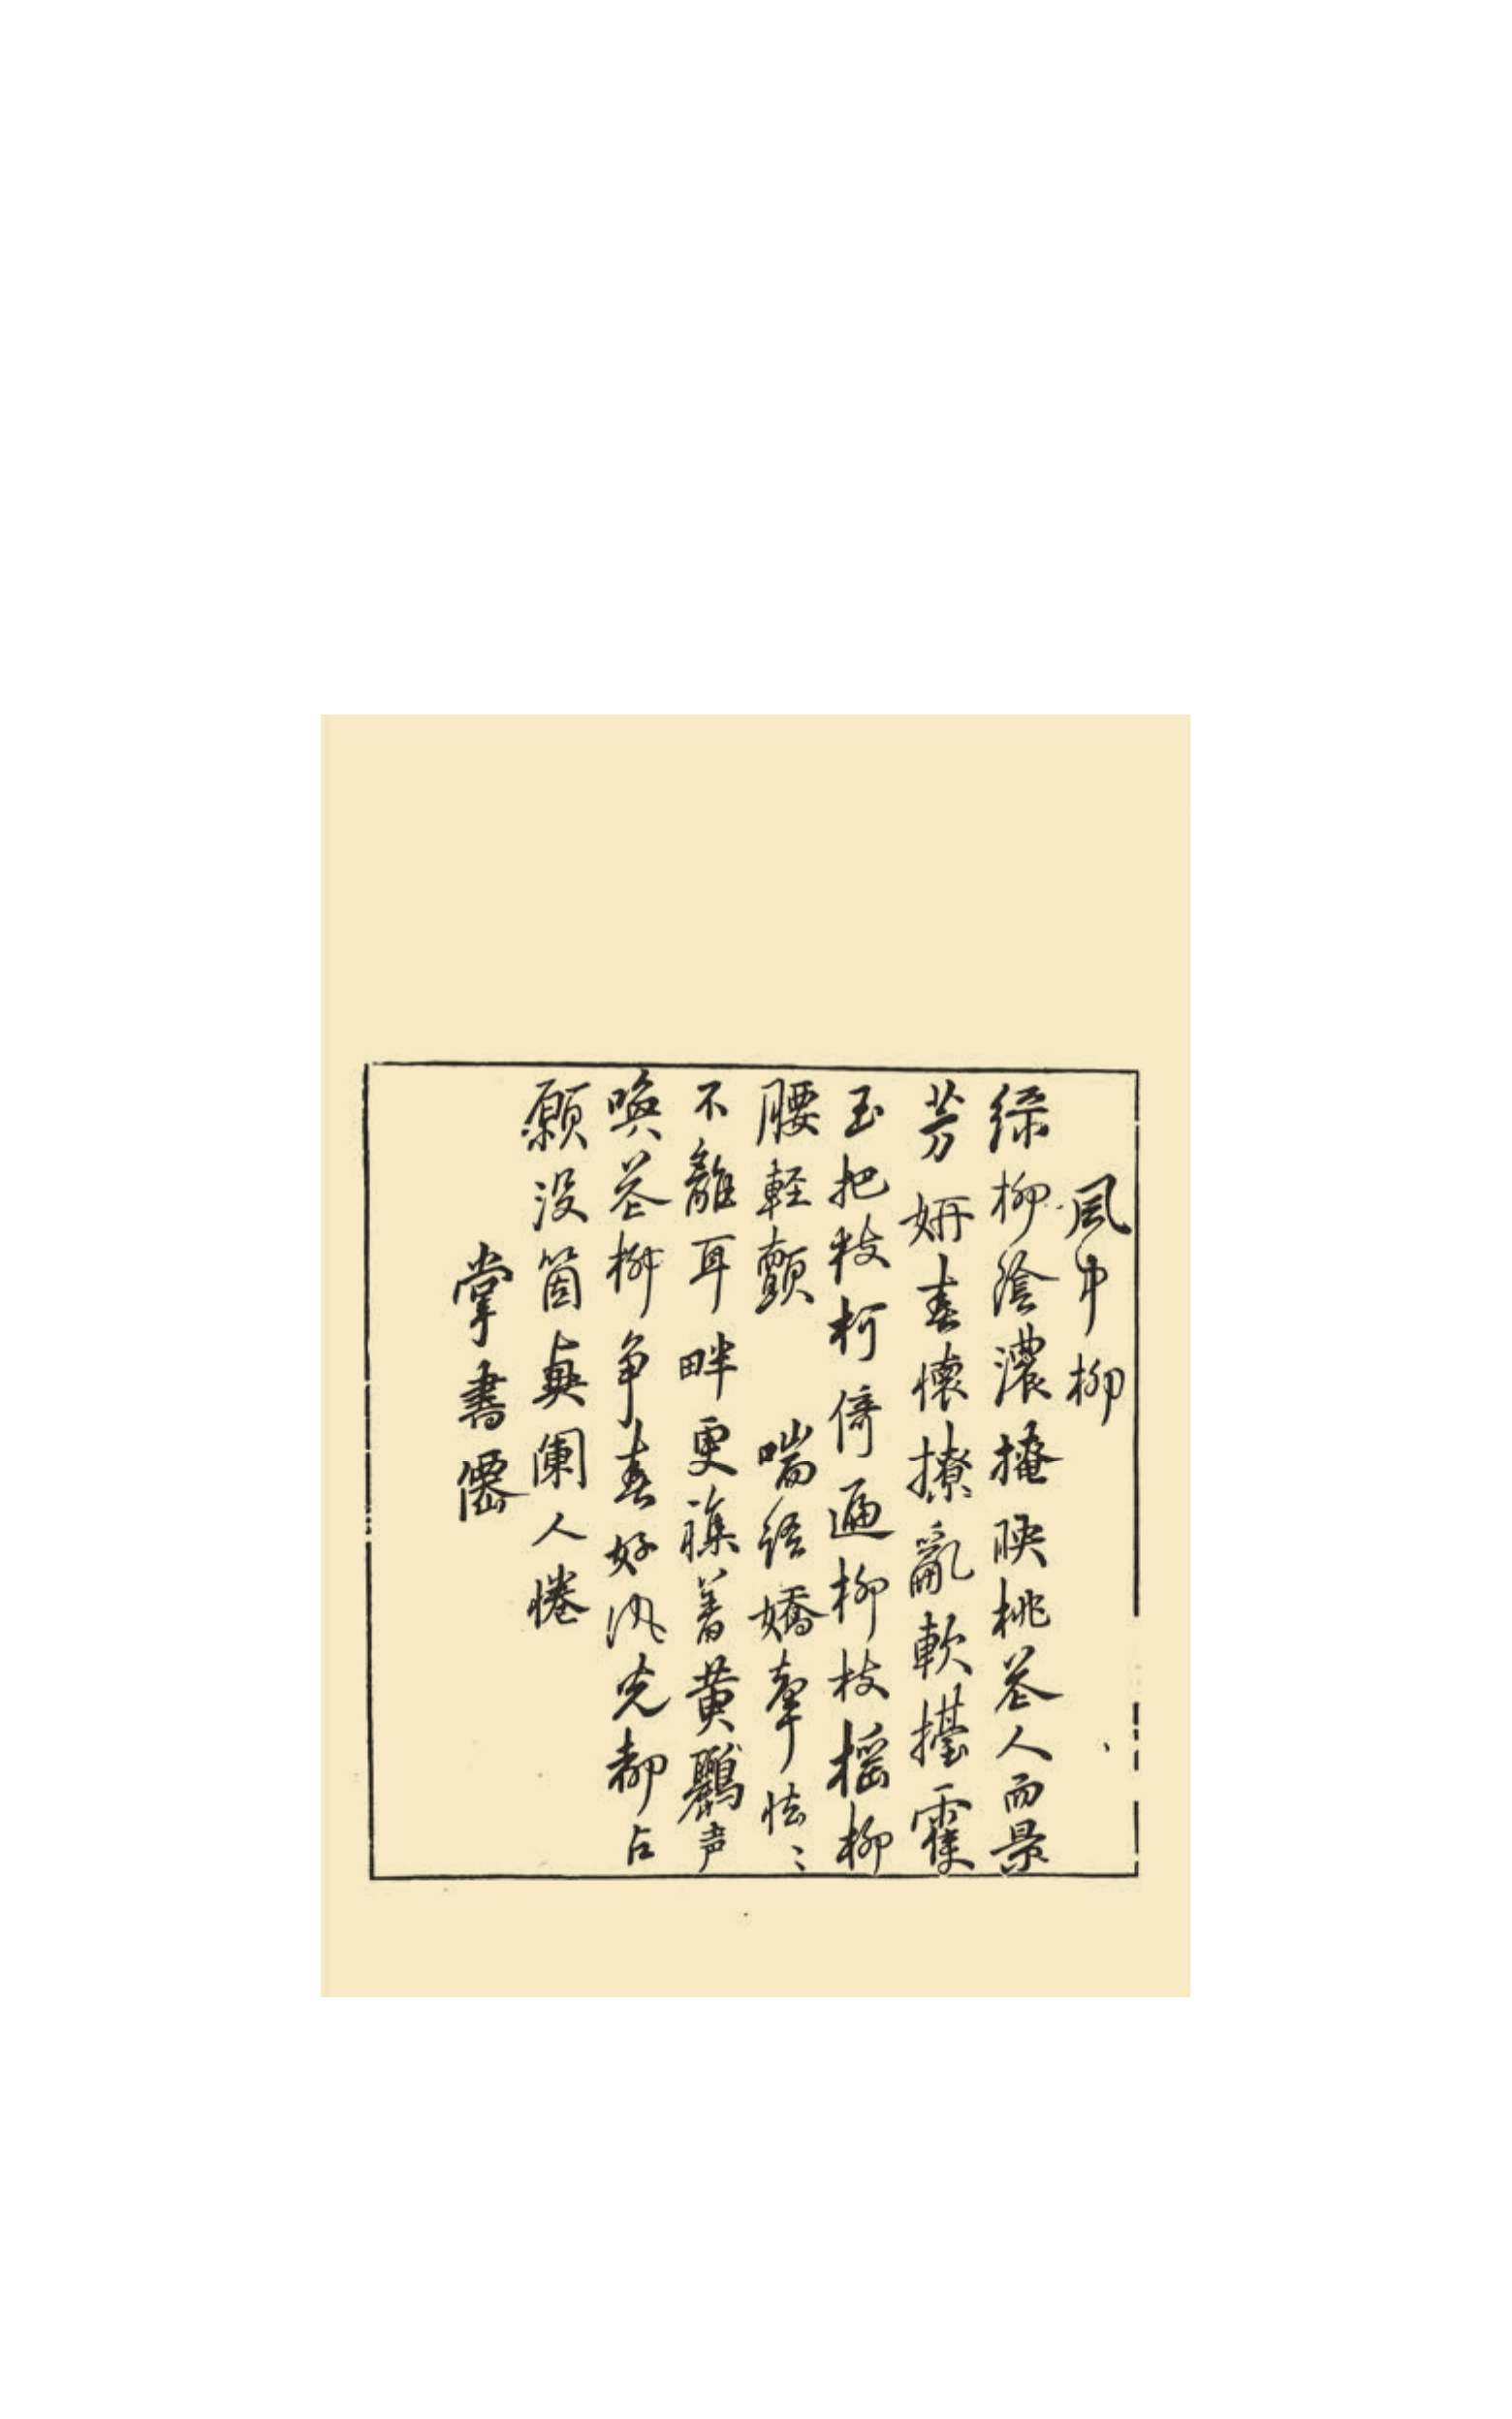 風中柳
綠柳陰濃掩映桃花人面景
芳妍春懷撩亂軟擡霍
玉把枝柯倚遍柳枝搖柳
腰輕顫 喘絲嬌聲怯〻
不離耳畔更襍着黃鸝声
喚花柳爭春好風光都占
願沒箇興闌人倦
掌書僊